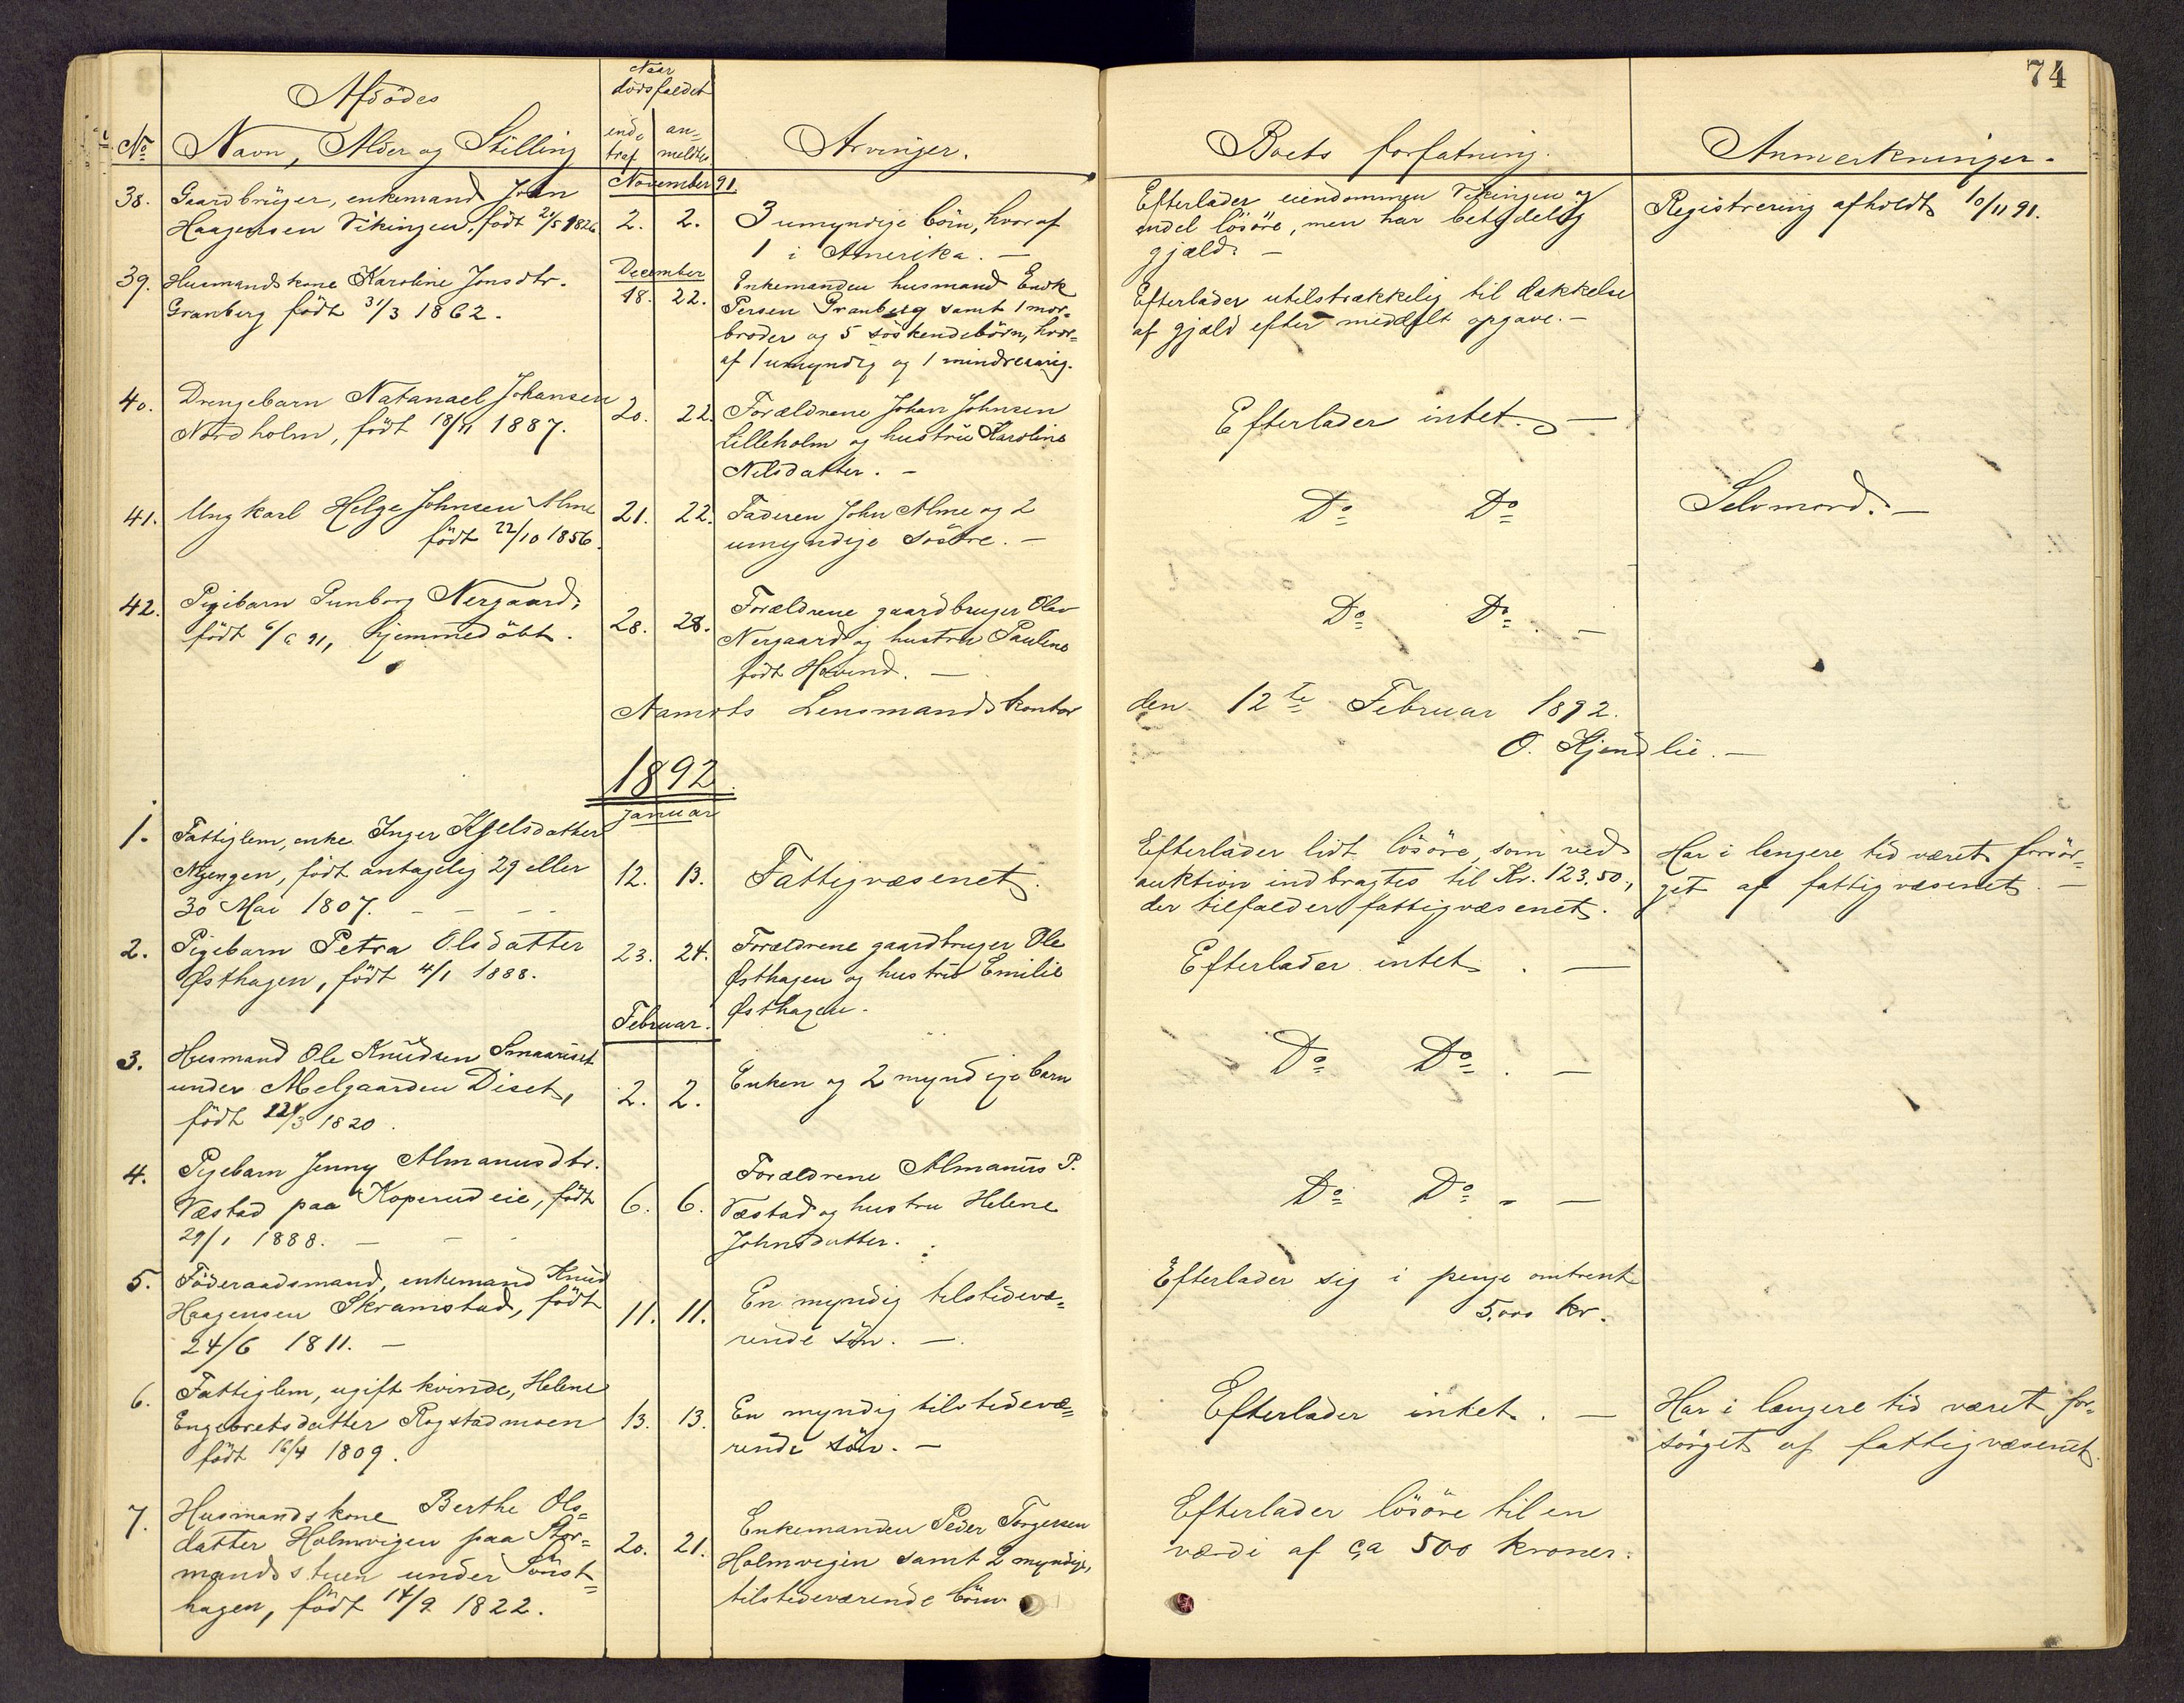 74
Afdödes
Navn, Alder og Stilling
No
Naar
dödsfaldet
indtraf
anmeldtes
Arvinger.
Boets forfatning.
Anmerkninger.
November 91.
38. Gaardbruger, enkemand Johan
Haagensen Vikingen, født 24/5 1826
2. 2.
3 umyndige börn, hvoraf
1 i Amerika. —
Efterlader eiendommen Vikingen og
endel lösöre, men har betydelig
gjæld. —
Registrering afholdt 10/11 91.
December
39. Husmandskone Karoline Jonsdtr.
Granberg född 31/3 1862.
18. 22.
Enkemanden husmand
Persen Granberg samt 1 mor-
broder og 5 söskendebörn, hvor-
af 1 umyndig og 1 mindreaarig.
Efterlader utilstrækkelig til dækkelse
af gjæld efter meddelt opgave. —
40. Drengebarn Natanael Johansen
Nordholm, födt 18/11 1887.
20. 22.
Forældrene Johan Johnsen
Lilleholm og hustru Karoline
Nilsdatter. —
Efterlader intet. —
41. Ungkarl Helge Johnsen Alme
födt 22/10 1856.
21. 22.
Faderen John Alme og 2
umyndige söstre. —
Do Do
Selvmord. —
42. Pigebarn Gunborg Nergaard,
födt 6/6 91, hjemmedöbt.
28. 28.
Forældrene gaardbruger Olav
Nergaard og hustru Pauline
födt Hovind. —
Do Do. —
Aamots Lensmandskontor den 12te Februar 1892.
O. Kjendlie. —
1892.
Januar
1. Fattiglem, enke Inger Kjelsdatter
Myengen, födt antagelig 29 eller
30 Mai 1807. — — —
12. 13.
Fattigvæsenet.
Efterlader lidt lösöre, som ved
auktion indbragtes til Kr. 123,50,
der tilfalder fattigvæsenet.
Har i længere tid været forsör-
get af fattigvæsenet. —
2. Pigebarn Petra Olsdatter
Østhagen, födt 4/1 1888.
23. 24.
Forældrene gaardbruger Ole
Østhagen og hustru Emilie
Østhagen.
Efterlader intet. —
Februar.
3. Husmand Ole Knudsen Smaariset
under Melgaarden Diset,
födt /3 1820.
2. 2.
Enken og 2 myndige barn
Do Do. —
4. Pigebarn Jenny Almanusdtr.
Væstad paa Koperudeie, födt
29/1 1888. — —
6. 6.
Forældrene Almanus P.
Væstad og hustru Helene
Johnsdatter.
Do Do. —
5. Föderaadsmand, enkemand Knud
Haagensen Skramstad, födt
24/6 1811. —
11. 11.
En myndig tilstedevæ-
rende sön. —
Efterlader sig i penge omtrent
5,000 kr.
6. Fattiglem, ugift kvinde, Helene
Engebretsdatter Rogstadmoen
födt 16/4 1809.
13. 13.
En myndig tilstedevæ-
rende sön. —
Efterlader intet. —
Har i længere tid været for-
sörget af fattigvæsenet.
7. Husmandskone Berthe Ols-
datter Holmvigen paa Stor-
mandsstuen under Sönst-
hagen, födt 14/9 1822.
20. 21.
Enkemanden Peder Torgersen
Holmvigen samt 2 myndige,
tilstedeværende börn.
Efterlader lösöre til en
værdi af ca 500 kroner.